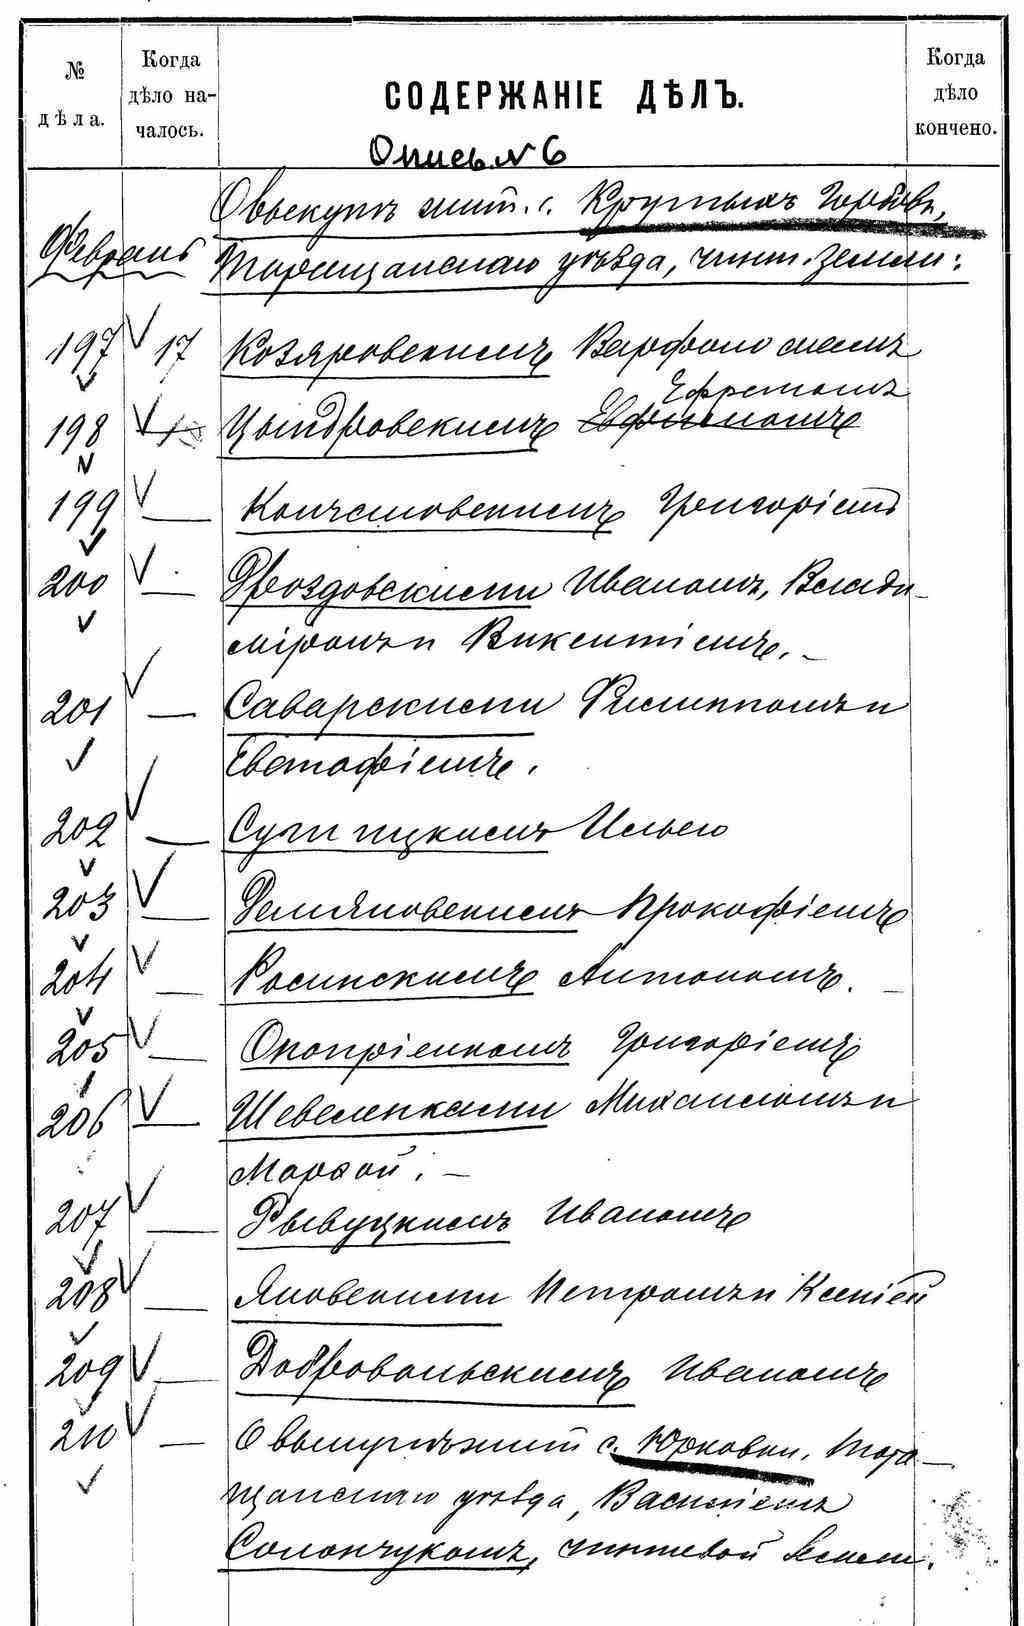 № дѣла.
Когда дѣло началось.
СОДЕРЖАНІЕ ДѢЛЪ.
Когда дѣло кончено.
Опись N 6
О выкупѣ жит. с. Крутыхъ Горбовъ,
Февраль Таращанскаго уѣзда, чинш. земли:
197 17 Козяровскимъ Варфоломеемъ
Ефремомъ
198 Цындровскимъ
199 — Григоріемъ
200 — Дроздовскими Иваномъ, Влади-
міромъ и Викентіемъ. —
201 — Саварскими Филиппомъ и
Евстафіемъ.
202 — Ильею
203 — Демяновскимъ Прокофіемъ
204 — Росинскимъ Антономъ. —
205 — Онопріенкомъ Григоріемъ
206 — Шевеленками Михаиломъ и
Марѳой. —
207 — Рывуцкимъ Иваномъ
208 — Яновскими Петромъ и Ксеніей
209 — Добровольскимъ Иваномъ
210 — О выкупѣ жит. с. Юрковки, Тара-
щанскаго уѣзда, Василіемъ
Солончукомъ, чиншевой земли.